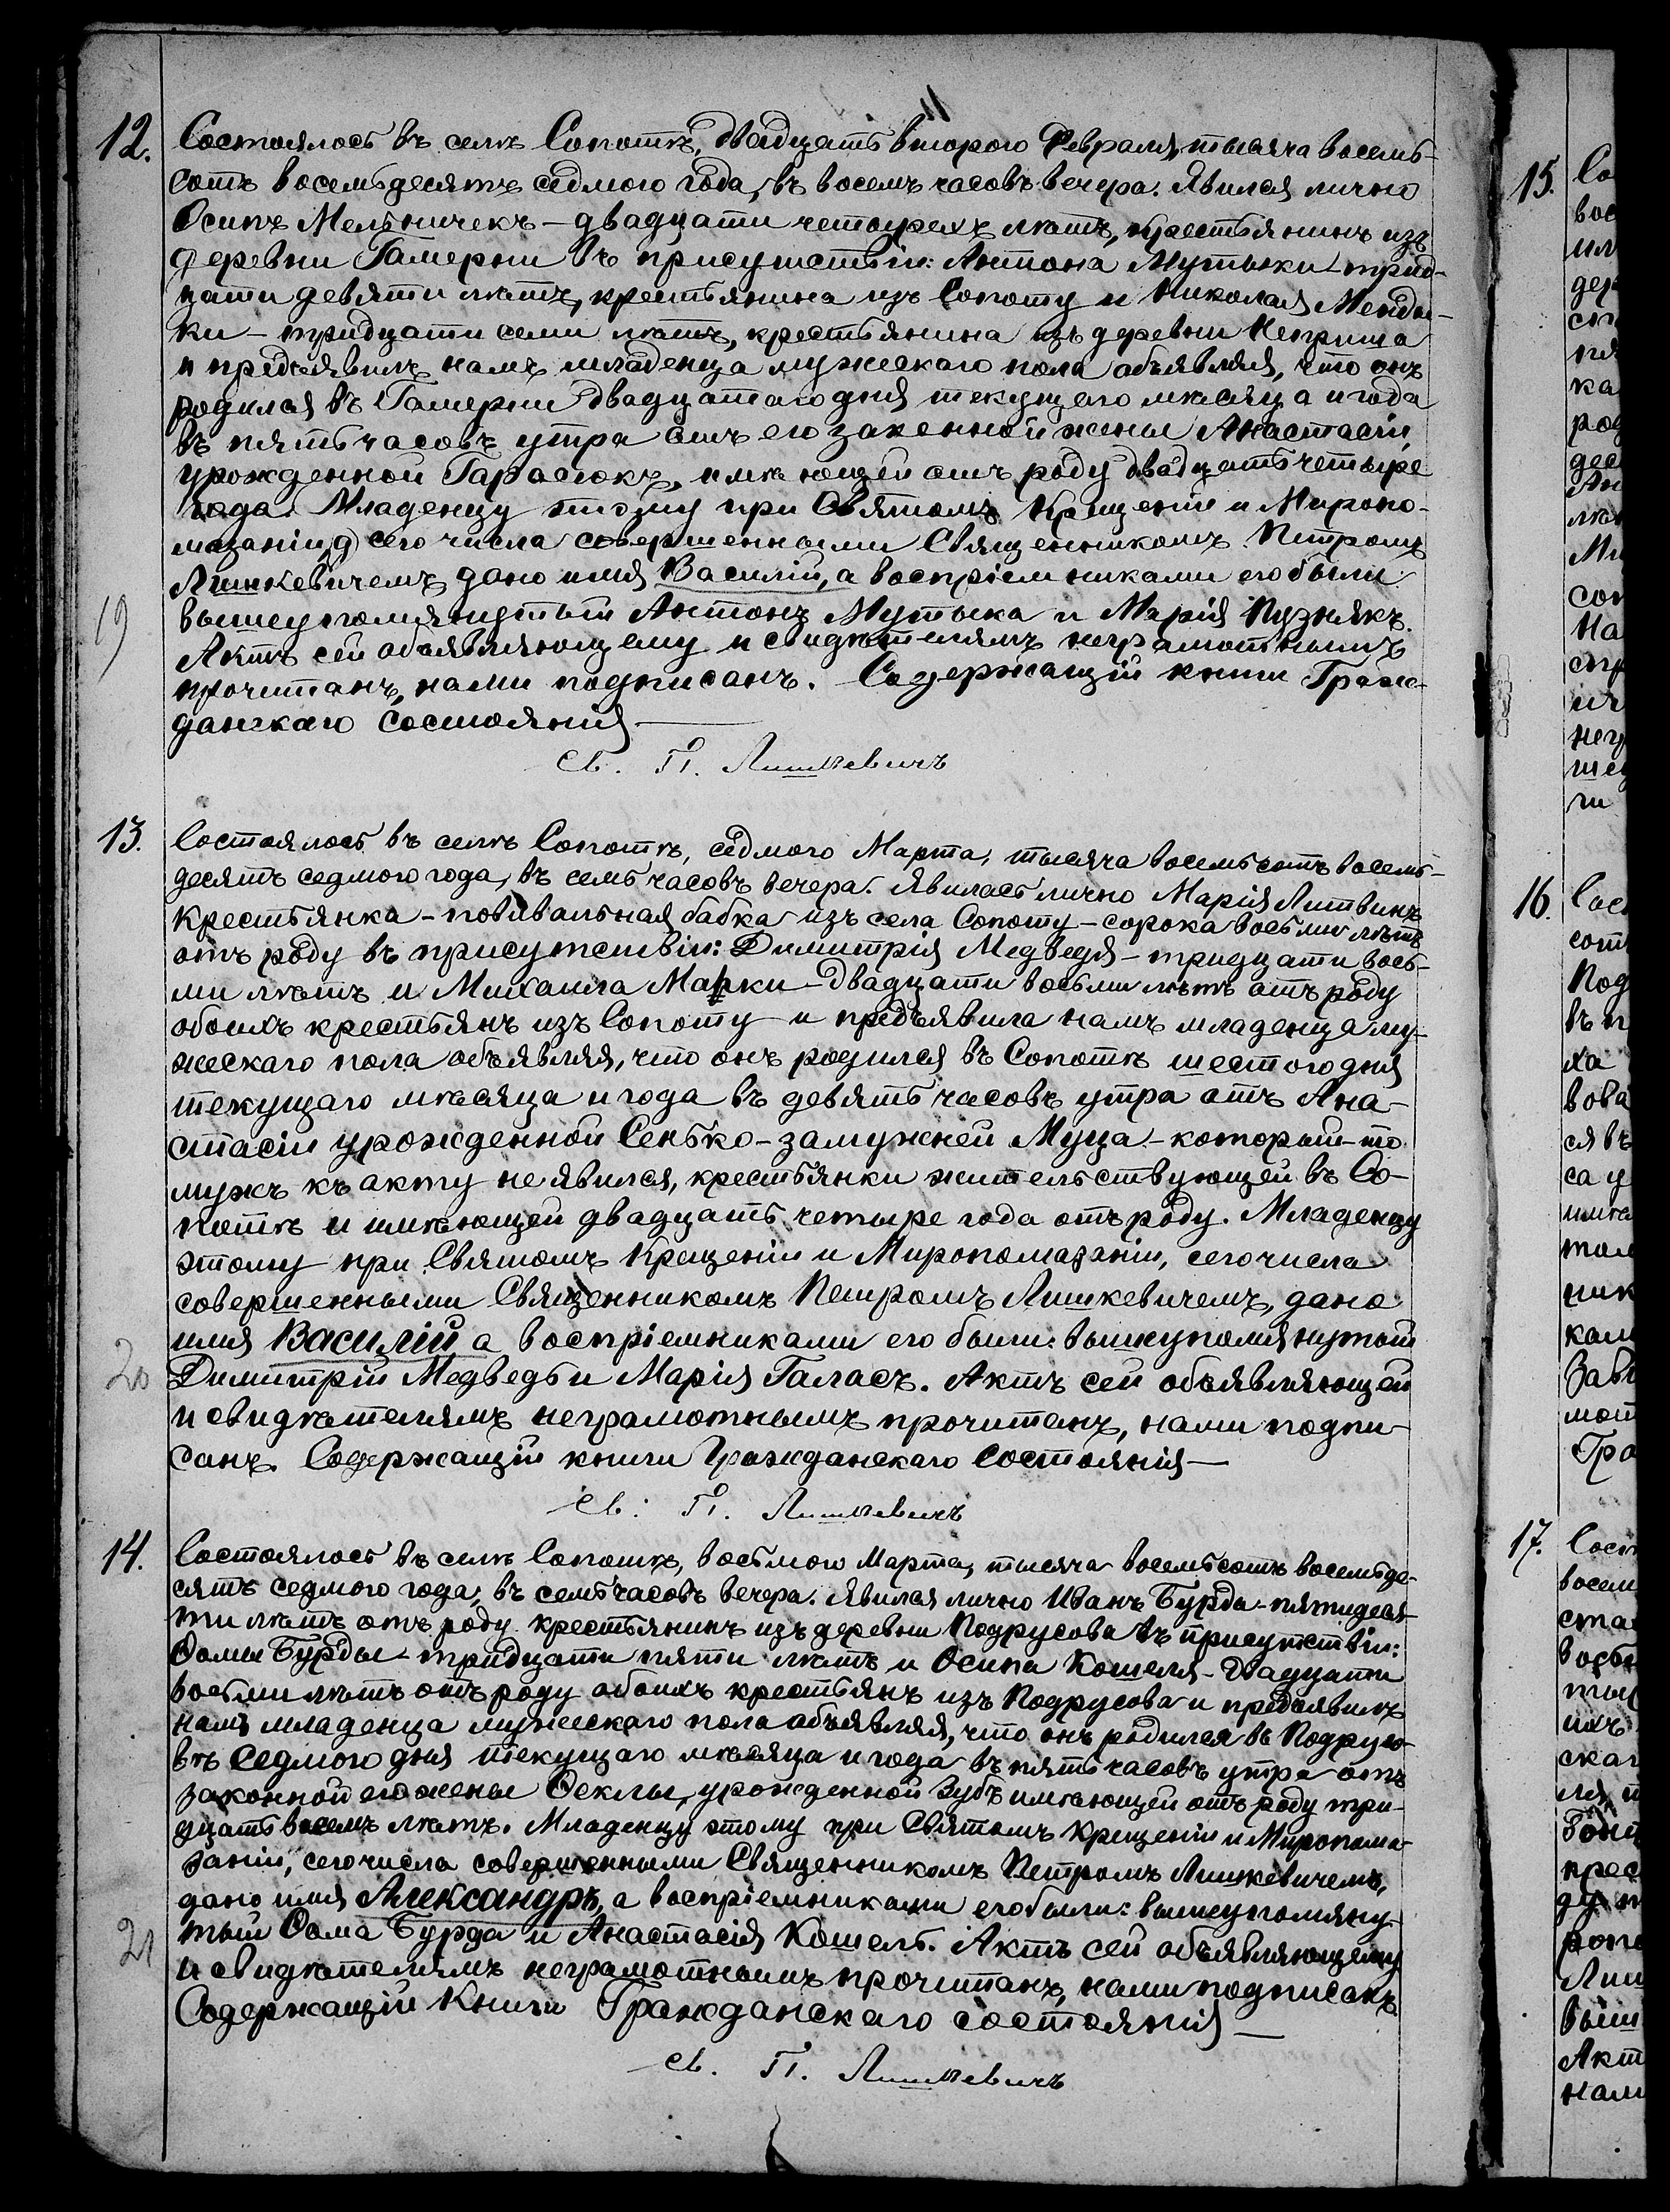 12. Состоялось въ селѣ Сопотѣ, двадцать втораго Февраля, тысяча восемь-
сотъ восемьдесятъ седмого года, въ восемъ часовъ вечера. Явился лично
Осипъ Мельничекъ – двадцати четырехъ лѣтъ, крестьянинъ изъ
деревни Гамерни въ присутствіи: Антона Мутыки – трид-
цати девяти лѣтъ, крестьянина изъ Сопоту и Николая Менды-
ки – тридцати семи лѣтъ, крестьянина изъ деревни Неприша
и предъявилъ намъ младенца мужескаго пола объявляя, что онъ
родился въ Гамерни двадцатаго дня текущаго мѣсяца и года
въ пять часовъ утра отъ его законной жены Анастасіи,
урожденной Гарасюкъ, имѣющей отъ роду двадцать четыре
года. Младенцу этому при Святомъ Крещеніи и Миропо-
мазаніи, сего числа совершенными Священникомъ Петромъ
Лишкевичемъ дано имя Василій, а воспріемниками его были:
вышеупомянутый Антонъ Мутыка и Марія Пузнякъ.
19
Актъ сей объявляющему и свидѣтелямъ неграмотнымъ
прочитанъ, нами подписанъ. Содержащій книги Граж-
данскаго Состоянія —
Св. П. Лишкевичъ
13. Состоялось въ селѣ Сопотѣ, седмого Марта, тысяча восемьсотъ восемь-
десятъ седмого года, въ семь часовъ вечера. Явилась лично Марія Литвинъ
Крестьянка – повивальная бабка изъ села Сопоту – сорока восьми лѣтъ
отъ роду въ присутствіи: Димитрія Медведя – тридцати вось-
ми лѣтъ и Михаила Марки – двадцати восьми лѣтъ отъ роду
обоихъ крестьянъ изъ Сопоту и предъявила намъ младенца му-
жескаго пола объявляя, что онъ родился въ Сопотѣ шестого дня
текущаго мѣсяца и года въ девять часовъ утра отъ Ана-
стасіи урожденной Сенько – замужней Муца – который-то
мужъ къ акту не явился, крестьянки жительствующей въ Со-
потѣ и имѣющей двадцать четыре года отъ роду. Младенцу
этому при Святомъ Крещеніи и Миропомазаніи, сего числа
совершенными Священникомъ Петромъ Лишкевичемъ, дано
имя Василій, а воспріемниками его были: вышеупомянутый
20
Димитрій Медведь и Марія Галасъ. Актъ сей объявляющей
и свидѣтелямъ неграмотнымъ прочитанъ, нами подпи-
санъ. Содержащій книги Гражданскаго Состоянія —
Св. П. Лишкевичъ
14. Состоялось въ селѣ Сопотѣ, восьмого Марта, тысяча восемьсотъ восемьде-
сятъ седмого года, въ семь часовъ вечера. Явился лично Иванъ Бурда – пятидеся-
ти лѣтъ отъ роду крестьянинъ изъ деревни Подрусова въ присутствіи:
Ѳомы Бурды – тридцати пяти лѣтъ и Осипа Кошеля – двадцати
восьми лѣтъ отъ роду обоихъ крестьянъ изъ Подрусова и предъявилъ
намъ младенца мужескаго пола объявляя, что онъ родился въ Подрусо-
вѣ седмого дня текущаго мѣсяца и года въ пять часовъ утра отъ
законной его жены Ѳеклы, урожденной Зубъ имѣющей отъ роду три-
дцать восемъ лѣтъ. Младенцу этому при Святомъ Крещеніи и Миропома-
заніи, сего числа совершенными Священникомъ Петромъ Лишкевичемъ,
дано имя Александръ, а воспріемниками его были: вышеупомяну-
21
тый Ѳома Бурда и Анастасія Кошель. Актъ сей объявляющему
и свидѣтелямъ неграмотнымъ прочитанъ, нами подписанъ
Содержащій Книги Гражданскаго состоянія —
Св. П. Лишкевичъ
15.
16.
17.